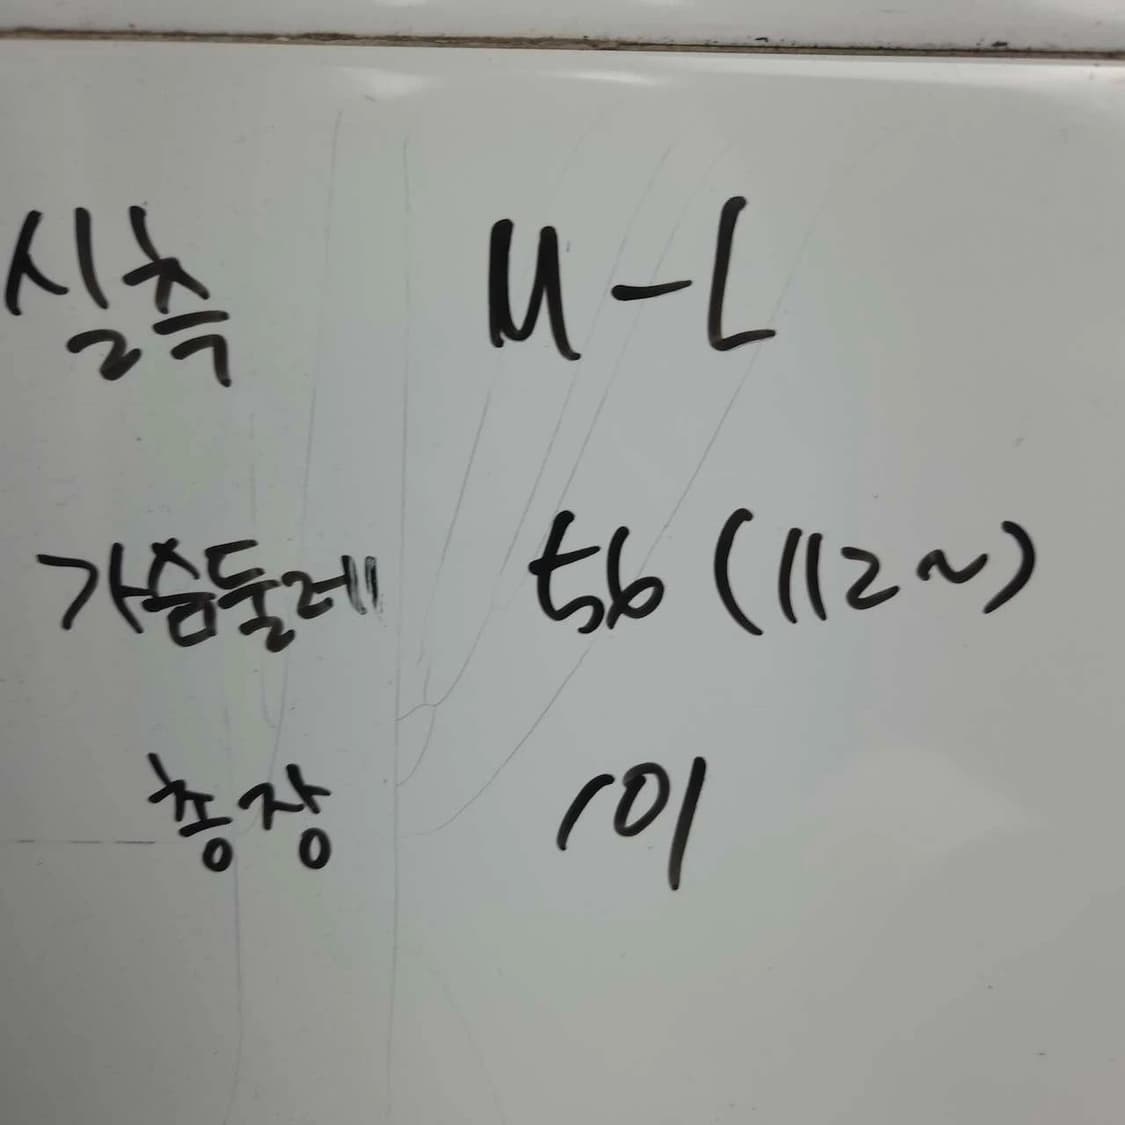 실측 M-L
가슴둘레 56 (112~)
총장 101